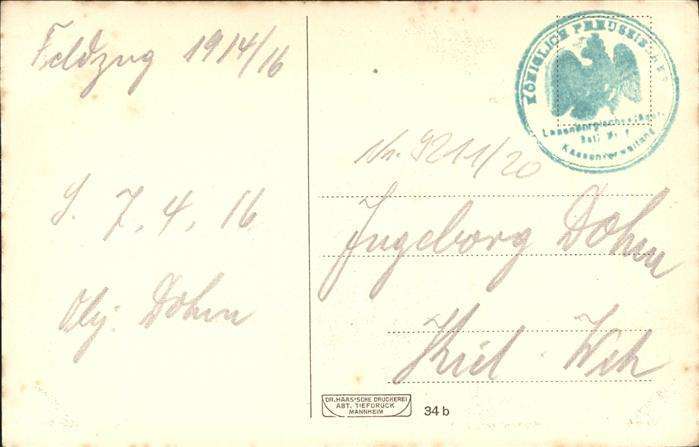 Feldzug 1914/16
S. 7.4.16
Obj. Dohrn
KÖNIGLICH PREUSSISCHES
Lauenburgisches Jäger-
Batl. Nr. 9
Kassenverwaltung
Nr. 9211/20
Ingeborg Dohrn
Kiel - Wik
DR. HAAS'SCHE DRUCKEREI
ABT. TIEFDRUCK
MANNHEIM
34 b